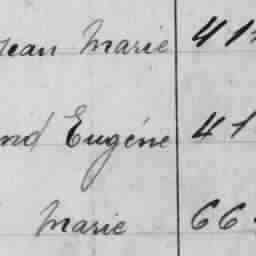 Jean Marie 41
nd Eugéne 41
Marie 66